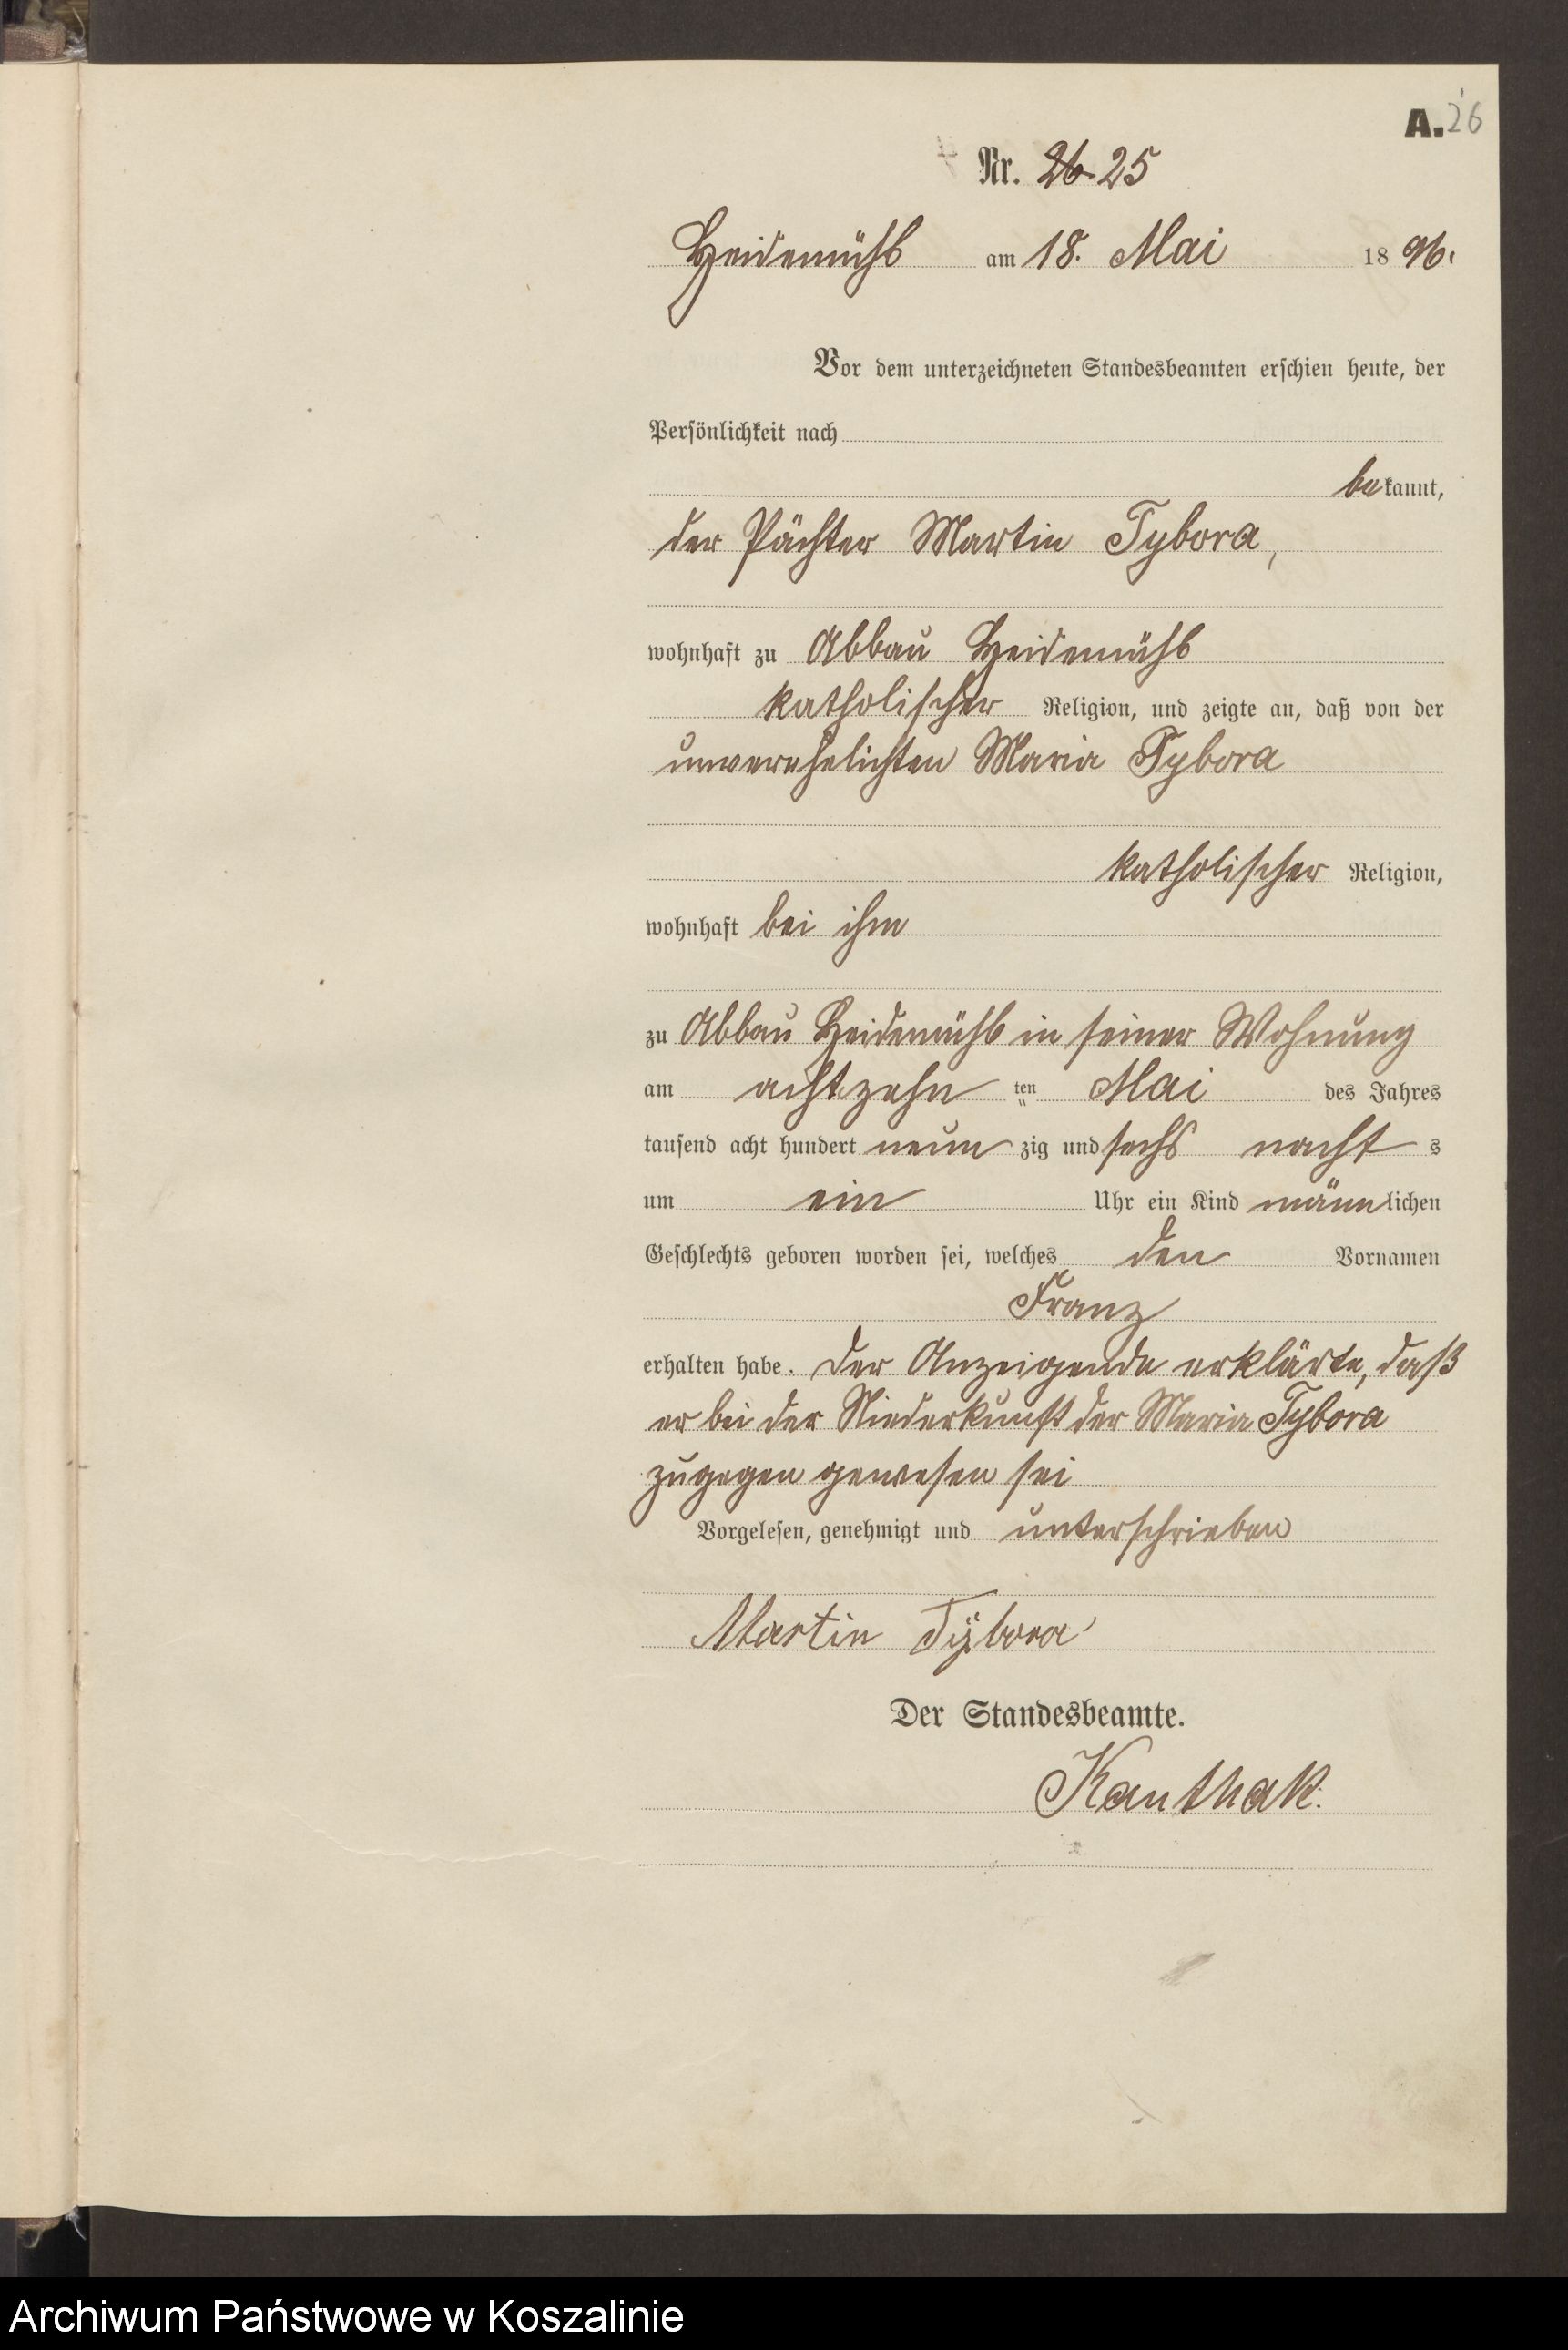 A. 26
Nr. 26 25
Heidemühl am 18. Mai 1896.
Vor dem unterzeichneten Standesbeamten erschien heute, der
Persönlichkeit nach
bekannt,
der Pächter Martin Tybora,
wohnhaft zu Abbau Heidemühl
katholischer Religion, und zeigte an, daß von der
unverehelichten Maria Tybora
katholischer Religion,
wohnhaft bei ihm
zu Abbau Heidemühl in seiner Wohnung
am achtzehn ten Mai des Jahres
tausend acht hundert neun zig und sechs nacht s
um ein Uhr ein Kind männlichen
Geschlechts geboren worden sei, welches den Vornamen
Franz
erhalten habe. Der Anzeigende erklärte, daß
er bei der Niederkunft der Maria Tybora
zugegen gewesen sei
Vorgelesen, genehmigt und unterschrieben
Martin Tÿbora
Der Standesbeamte.
Kanthak.
Archiwum Państwowe w Koszalinie